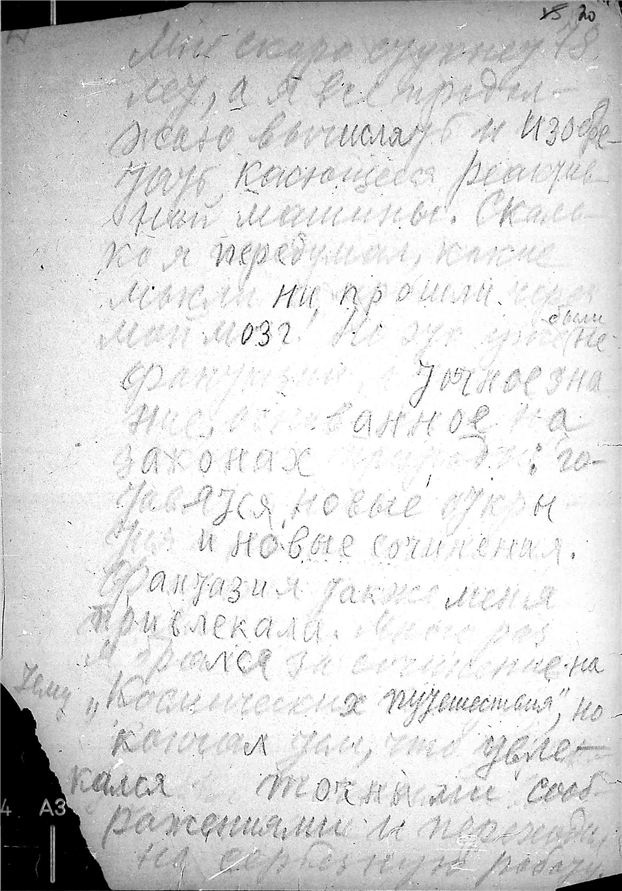 15 20
Мне скоро стукнет 78
лет, а я все продол-
жаю вычислять и изобре-
тать касающееся реактив-
ной машины. Сколь-
ко я передумал, какие
мысли ни прошли через
мой мозг! Но это уже были не
фантазии, а точное зна
ние, основанное на
законах природы: го-
товятся новые откры-
тия и новые сочинения.
Фантазия также меня
привлекала. Много раз
я брался за сочинение на
тему „Космические путешествия", но
кончал тем, что увле-
кался точными сооб-
ражениями и переходил
на серьезную работу.
4 A3